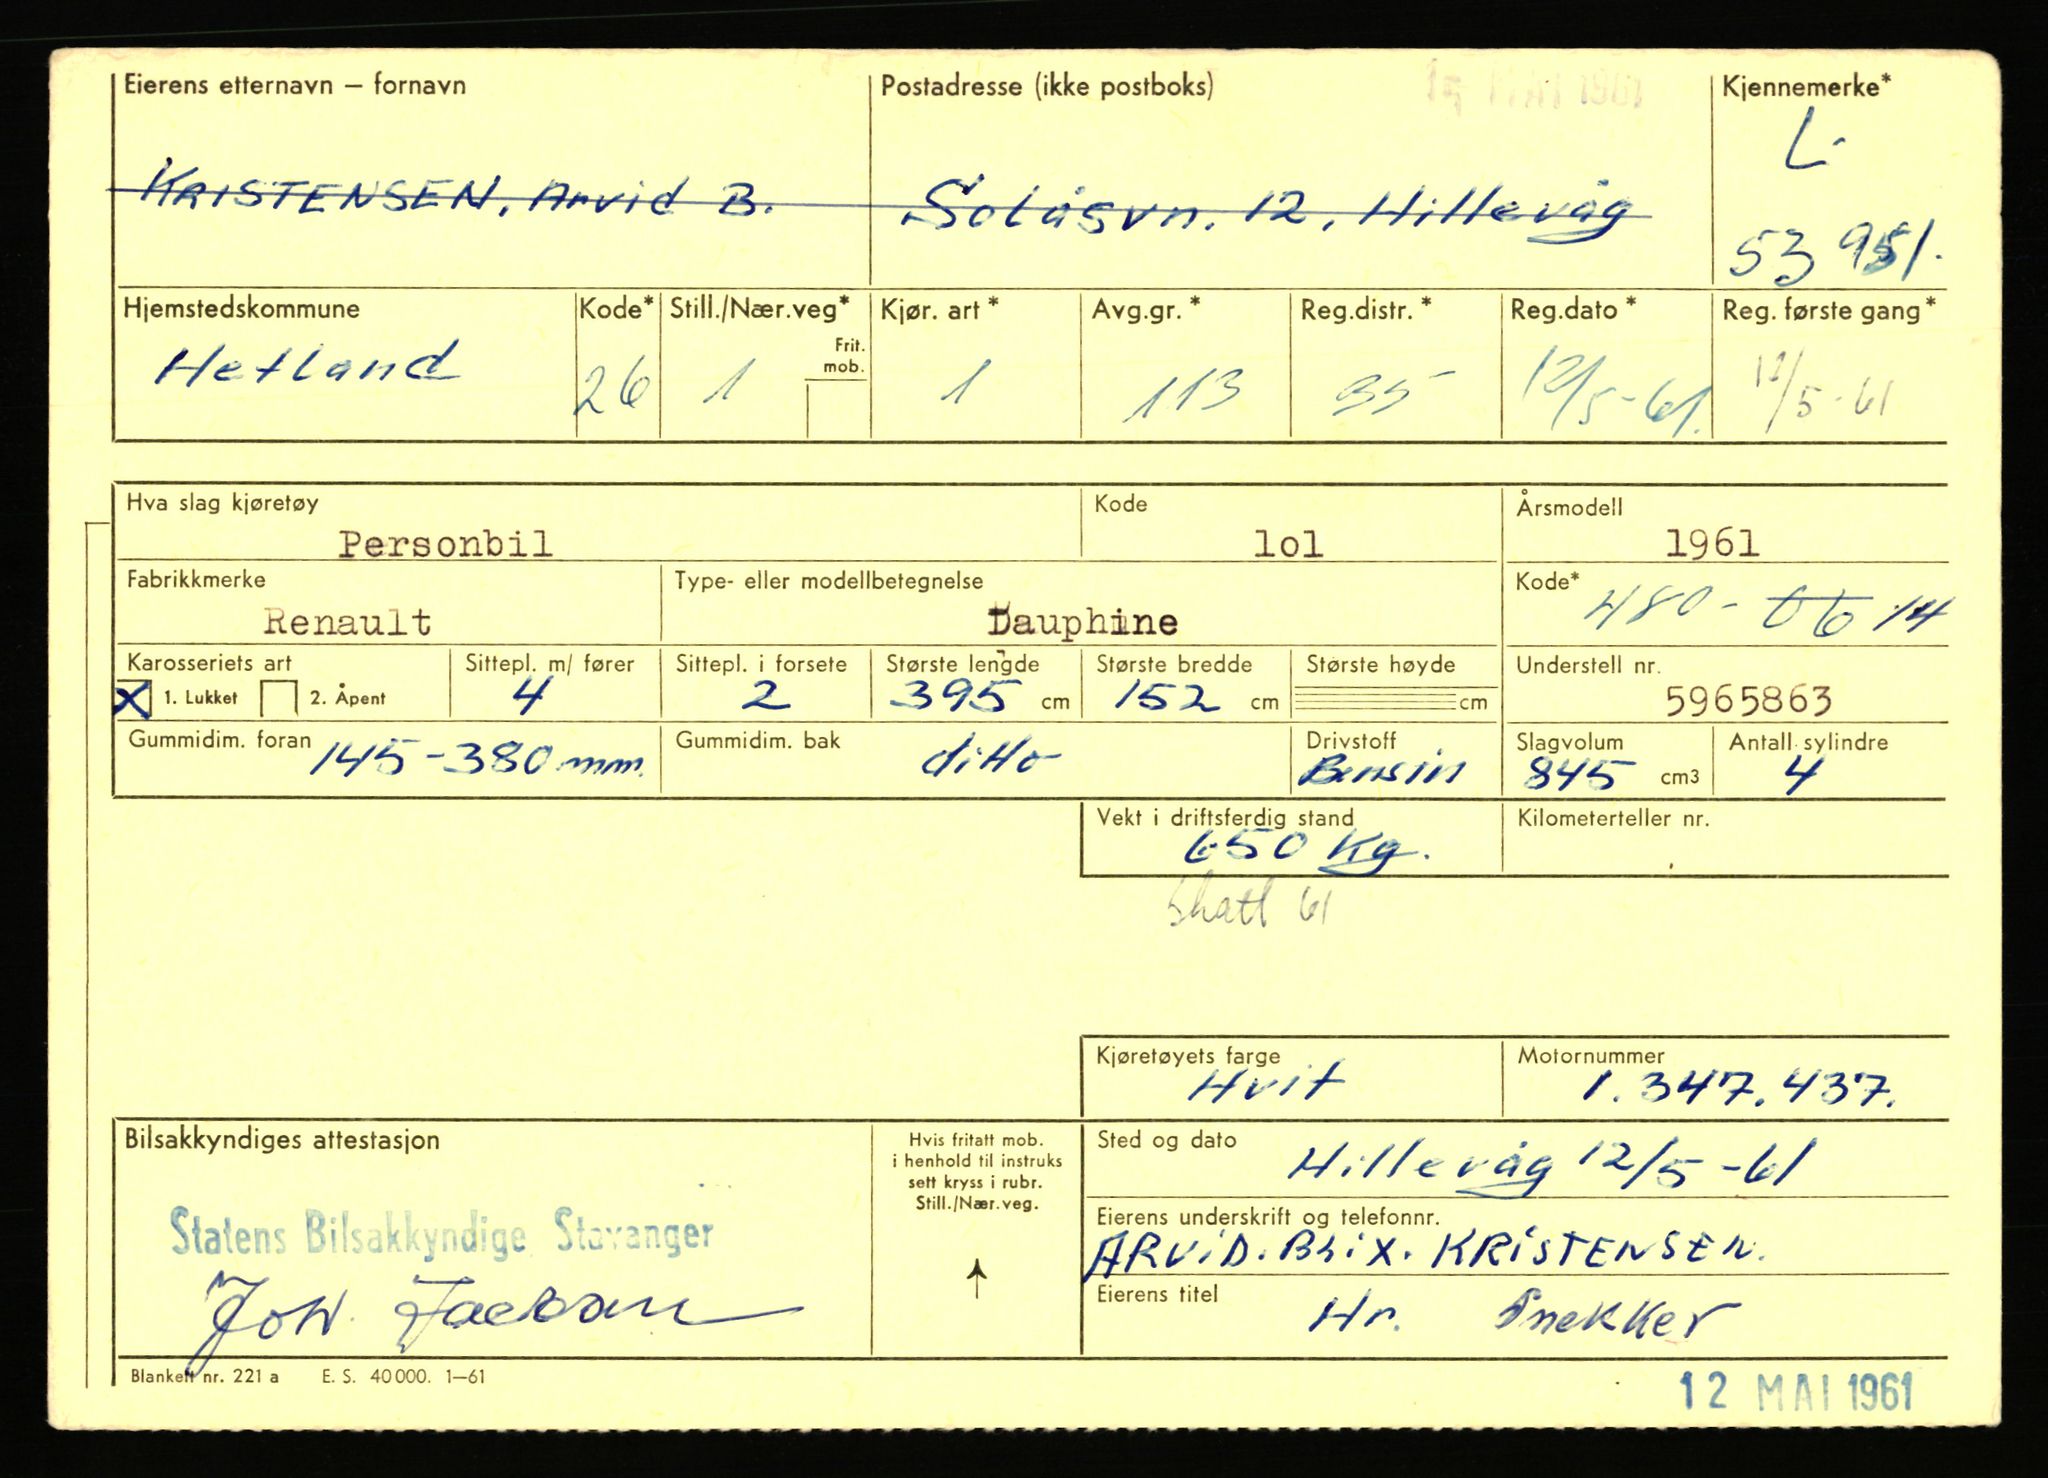 Eierens etternavn – fornavn Postadresse (ikke postboks) MAI 1961 Kjennemerke*
L-
KRISTENSEN, Arvid B. Solåsvn. 12, Hillevåg
53 951.
Hjemstedskommune Kode* Still./Nær.veg* Kjør. art* Avg.gr.* Reg.distr.* Reg.dato* Reg. første gang*
Frit. mob.
Hetland 26 1 1 113 35 12/5-61. 12/5-61
Hva slag kjøretøy Kode Årsmodell
Personbil lol 1961
Fabrikkmerke Type- eller modellbetegnelse Kode*
Renault Dauphine 480- 06 14
Karosseriets art Sittepl. m/ fører Sittepl. i forsete Største lengde Største bredde Største høyde Understell nr.
X 1. Lukket 2. Åpent 4 2 395 cm 152 cm cm 5965863
Gummidim. foran 145-380 mm. Gummidim. bak ditto Drivstoff Slagvolum Antall sylindre
Bensin 845 cm3 4
Vekt i driftsferdig stand Kilometerteller nr.
650 Kg.
Skatt 61
Kjøretøyets farge Motornummer
Hvit 1.347.437.
Bilsakkyndiges attestasjon Hvis fritatt mob. Sted og dato
i henhold til instruks Hillevåg 12/5-61
sett kryss i rubr.
Still./Nær.veg.
Statens Bilsakkyndige Stavanger Eierens underskrift og telefonnr.
ARViD. Blix. KRiSTENSEN.
Eierens titel
Joh. Hr. Snekker
Blankett nr. 221 a E. S. 40 000. 1–61
12 MAI 1961